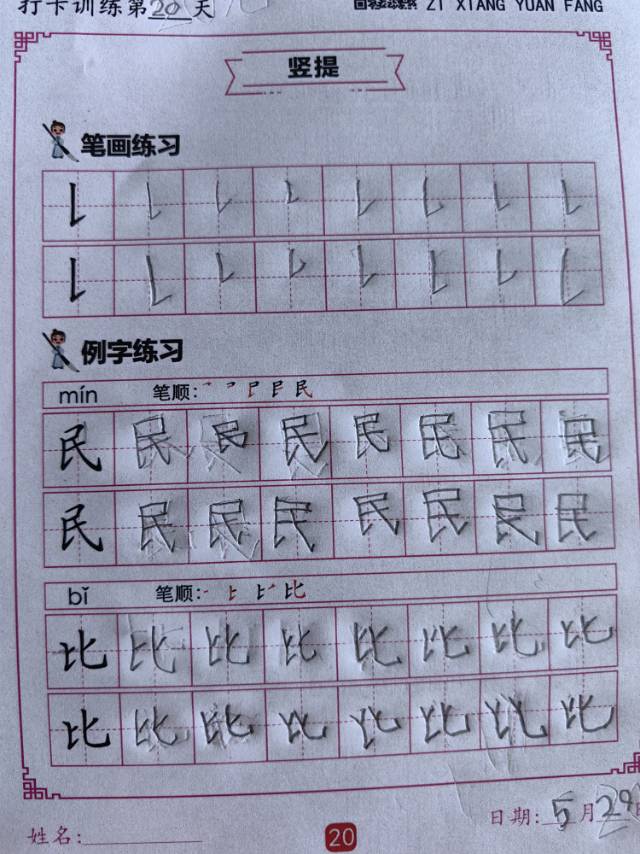 打卡训练第20天
ZI XIANG YUAN FANG
竖提
笔画练习
例字练习
mín 笔顺:
民 民 民 民 民 民 民 民
民 民 民 民 民 民 民 民
bǐ 笔顺:
比 比 比 比 比 比 比 比
比 比 比 比 比 比 比 比
日期:5月29日
姓名:
20